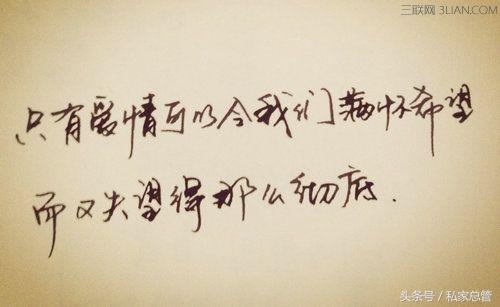 三联网 3LIAN.COM
只有爱情可以令我们满怀希望
而又失望得那么彻底.
头条号/私家总管